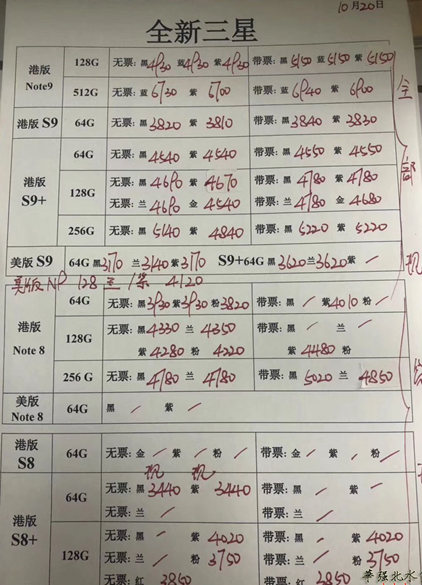 10月20日
全新三星
港版 Note9 128G 无票: 黑4930 蓝4930 紫4930 带票: 黑5150 蓝5150 紫5150
512G 无票: 蓝6730 紫6700 带票: 蓝6940 紫6900
港版 S9 64G 无票: 黑3820 紫3810 带票: 黑3840 紫3830
港版 S9+ 64G 无票: 黑4540 紫4540 带票: 黑4550 紫4550
128G 无票: 黑4690 紫4670 带票: 黑4780 紫4780
无票: 兰4690 金4540 带票: 兰4780 金4680
256G 无票: 黑5140 紫4840 带票: 黑5220 紫5220
美版 S9 64G 黑3170 兰3140 紫3170 S9+64G 黑3620 兰3620 紫 /
美版 128 4120
港版 Note 8 64G 无票: 黑3930 紫3930 粉3820 带票: 黑 / 紫4010 粉 /
128G 无票: 黑4330 兰4350 带票: 黑 / 兰 /
紫4280 粉4220 紫4480 粉
256 G 无票: 黑4780 兰4780 带票: 黑5020 兰4850
美版 Note 8 64G 黑 / 紫 /
港版 S8 64G 无票: 金 / 紫 / 粉 / 带票: 金 / 紫 / 粉 /
港版 S8+ 64G 无票: 黑3440 紫3440 带票: 黑 / 紫 /
无票: 兰 / 带票: 兰 /
128G 无票: 黑 / 紫4020 带票: 黑 / 紫4020
无票: 兰 / 粉3750 带票: 兰 / 粉3750
无票: 红3850 带票: 红3850
全部机
华强北水